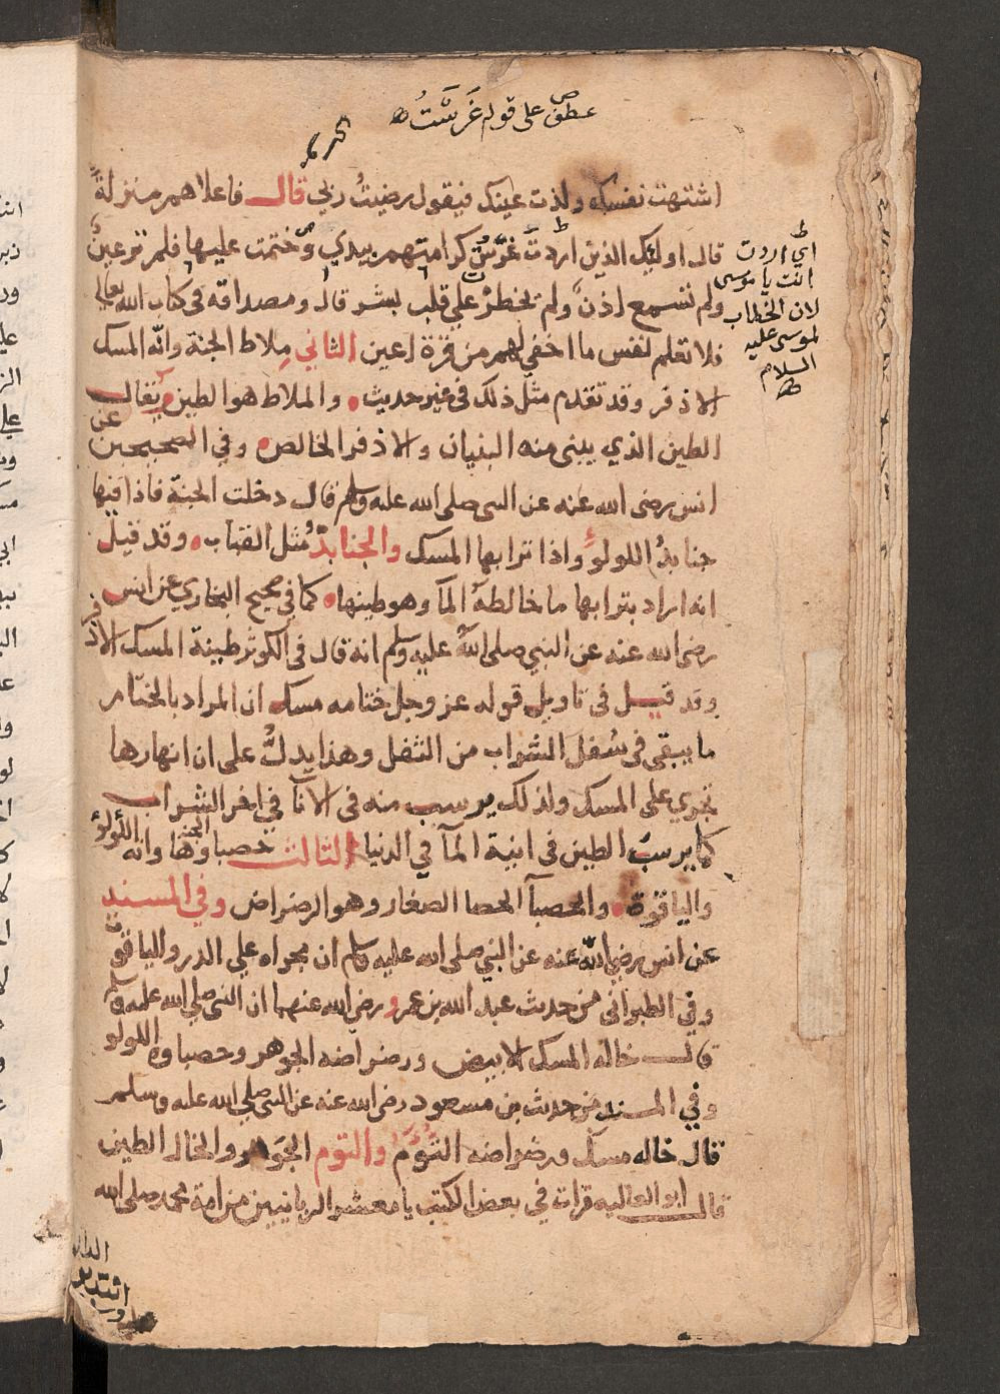 عطف على قوله غَرَسْتُ
اشتهت نفسك ولذت عينك فيقول رضيتُ ربي قال فاعلاهم منزلة
قال اوليك الذين اردتُ غرستُ كرامتهم بيدي وختمت عليها فلم تر عينٌ
ولم تسمع اذنٌ ولم يخطر على قلب بشر قال ومصداقه فى كتاب الله تعالى
فلا تعلم نفس ما اخفي لهم من قرة اعين الثاني مِلاط الجنة وانّه المسك
الاذفر وقد تقدم مثل ذلك فى غير حديث والملاط هو الطين ويقال
الطين الذي يبنى منه البنيان والاذفر الخالص وفي الصحيحين عن
انس رضى الله عنه عن النبى صلى الله عليه وسلم قال دخلت الجنة فاذا فيها
جنابذُ اللولوءِ واذا ترابها المسك والجنابذُ مُثل القباب وقد قيل
انه اراد بترابها ما خالطهُ المآ وهو طينها كما في صحيح البخاري عن انس
رضى الله عنه عن النبي صلى الله عليه وسلم انه قال فى الكوثر طينهُ المسك الاذفر
وقد قيل فى تاويل قوله عز وجل ختامه مسك ان المراد بالختام
ما يبقى فى سُفل الشراب من الثفل وهذا يدلُّ على ان انهارها
تجري على المسك ولذلك يرسب منه فى الانآ في اخر الشراب
كما يرسبُ الطين فى انية المآ في الدنيا الثالث حصباوها وانه اللولؤ
والياقوة والحصبآ الحصا الصغار وهو الرضراض وفي المسند
عن انس رضي الله عنه عن النبي صلى الله عليه وسلم ان مجراه على الدر والياقوت
وفي الطبرانى من حديث عبد الله بن عمرو رضى الله عنهما ان النبى صلى الله عليه وسلم
قال خاله المسك الابيض ورضراضه الجوهر وحصباوه اللولو
وفي المسند من حديث بن مسعود رضى الله عنه عن النبى صلى الله عليه وسلم
قال خاله مسك ورضراضه التُوَّمُ والتوم الجوهر والخال الطين
قال ابو العاليه قرات في بعض الكتب يا معشر الربانيين من امة محمد صلى الله
اي اردت
انت يا موسى
لان الخطاب
لموسى عليه
السلام